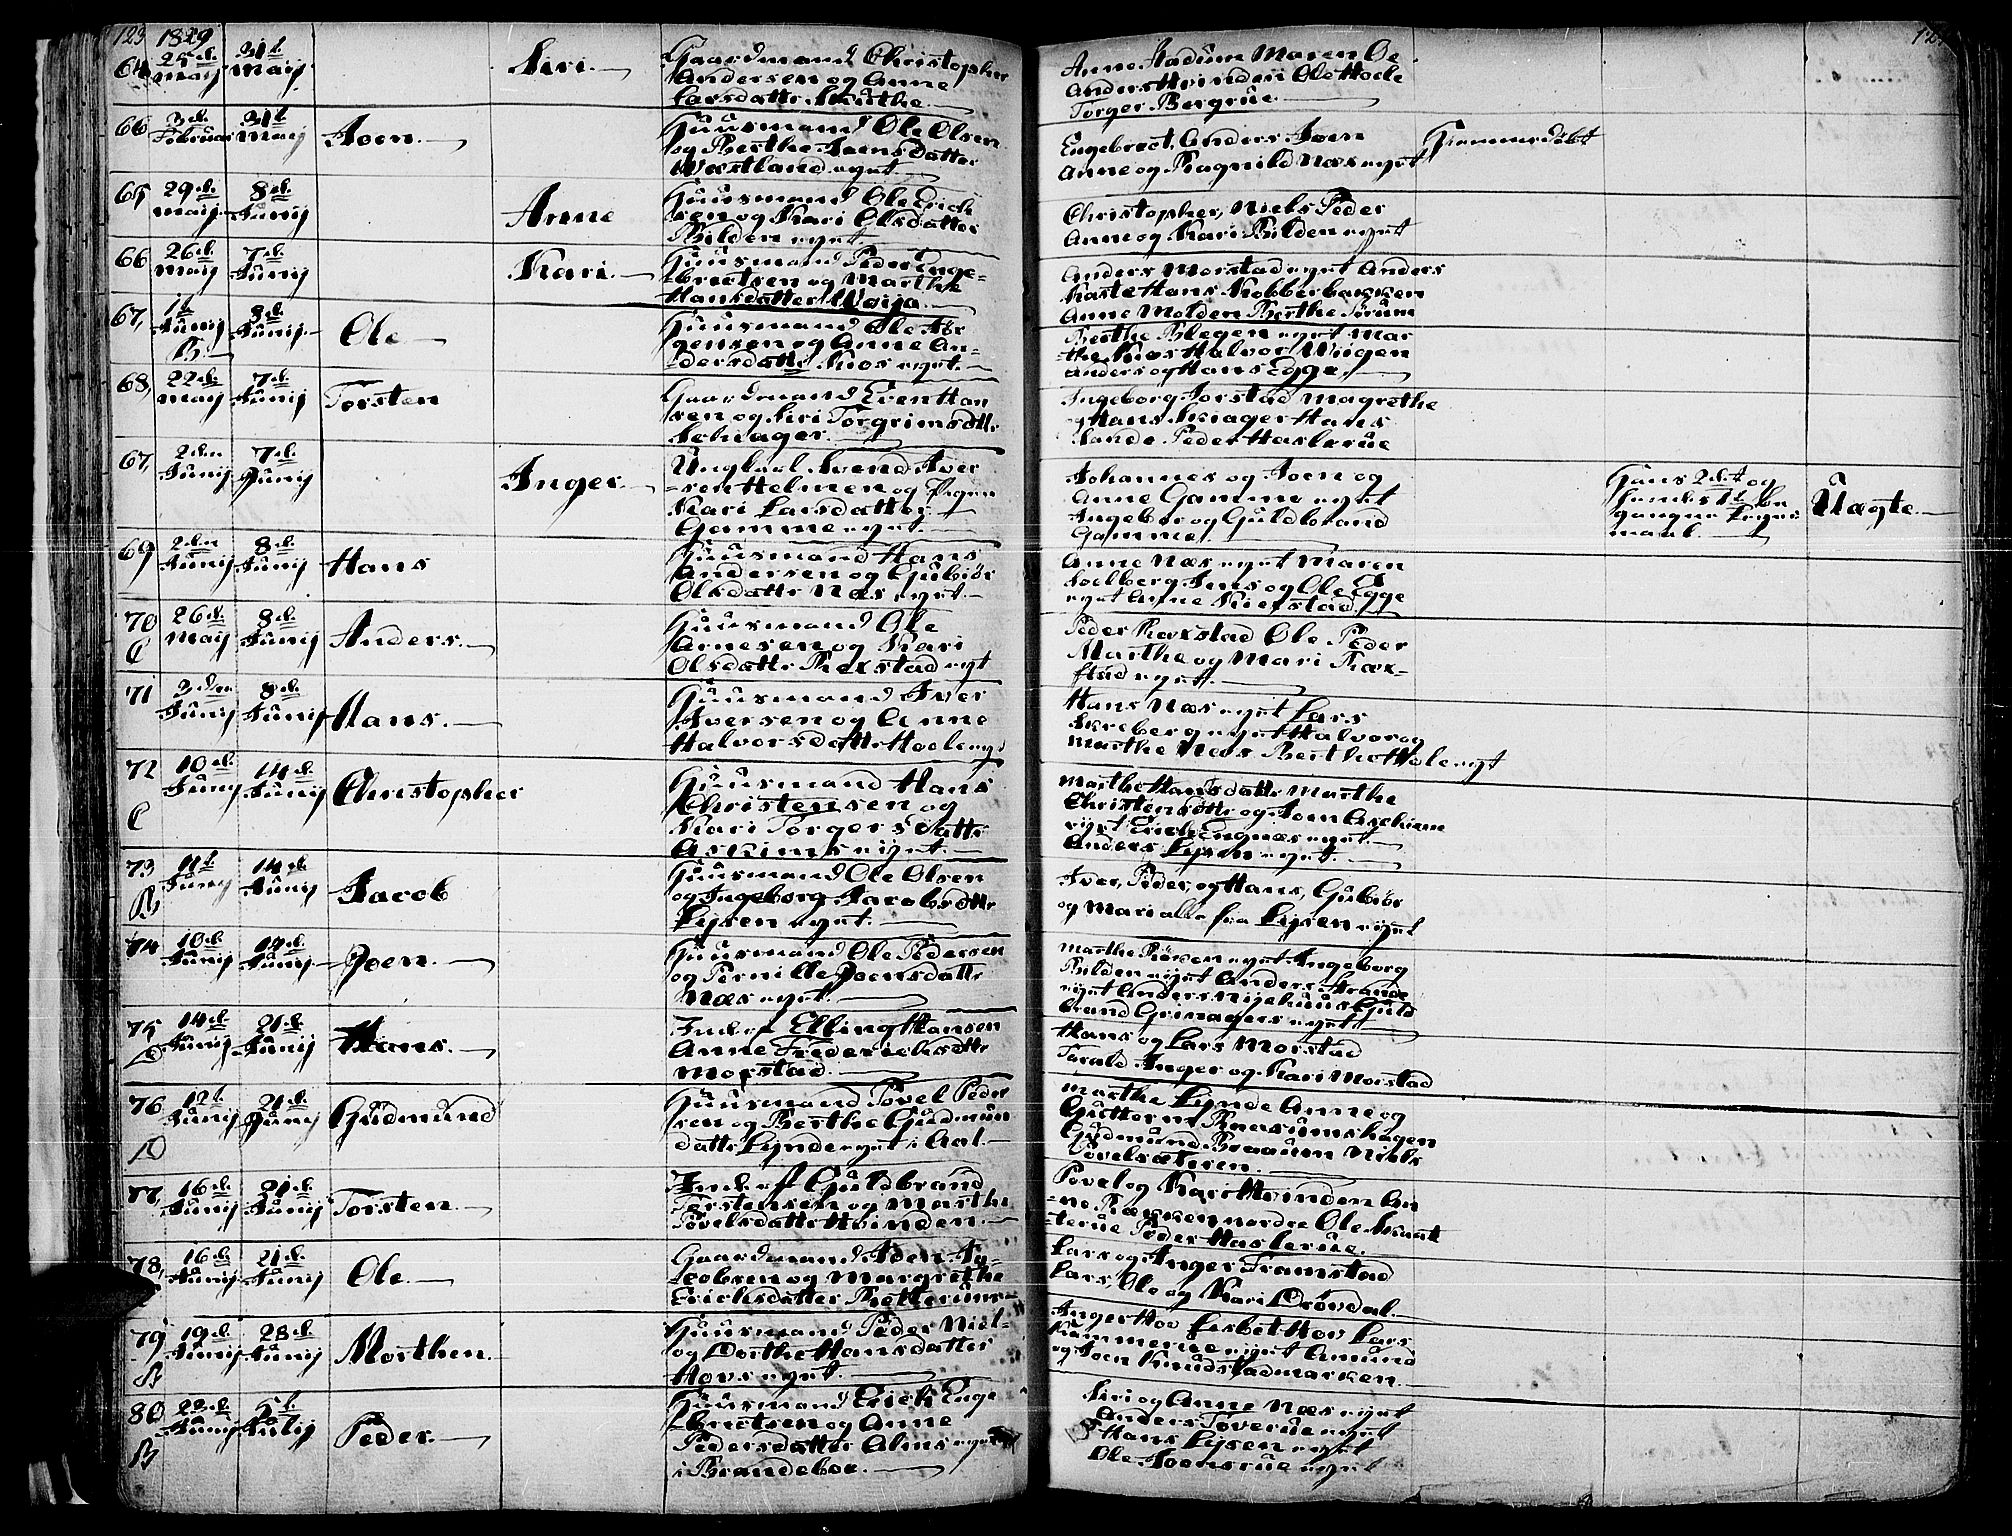 123 1829
64 25de Maij 31te Maij Siri. Gaardmand Christopher
Andersen og Anne
Larsdattr
Anne Stadum Maren Oe
Anders Hvinden Ole Hoele
Torger Bergrue.
66 3de Februar 31te Maij Joen. Huusmand Ole Olsen
og Berthe Joens Datter
Westland eyet.
Engebret, Anders Joen
Anne og Ragnild Næs eyet
Hiemmedøbt
65 29de Maij 8de Junij Anne Huusmand Ole Erich
sen og Kari Olsdatter
Bilden eyet.
Christopher, Niels Peder
Anne og Kari Bilden eyet
66 26de Maij 7de Junij Kari. Huusmand Peder Enge-
bretsen og Marthe
Hansdatter Woija
Anders Morstad eyet Anders
Haste Hans Kobberbakken
Anne Molden Berthe Sørum
67, 1te Junij 8de Junij. Ole Huusmand Ole Jør
gensen og Anne An-
dersdattr Kios eyet.
B.
Berthe Blegen eyet Mar
the Kios Halvor Wiigen
Anders og Hans Egge.
68, 22de Maij 7de Junij Torsten Gaardmand Even Han
sen og Siri Torgrimsdttr
Schiager.
Ingeborg Jorstad Magrethe
og Hans Skiager Hans
Sande. Peder Haslerue
67, 2den Junij 7de Junij Inger. Ungkarl Svend Iver
sen Helmen og Pigen
Kari Larsdatter
Gamme eyet.
Johannes og Joen og
Anne Gamme eyet
Ingebor og Guldbrand
Gamme
Hans 2det og
hendes 1te be
gangne Leyer
maal.
Uægte.
69 2den Junij 8de Junij Hans Huusmand Hans
Andersen og Gubiør
Olsdattr Næs eyet.
Anne Næs eyet Maren
Soelberg Jens og Ole Egge
eyet Anne Kierstad
70 26de Maij 8de Junij Anders. Huusmand Ole
C Arnesen og Kari
Olsdattr Rækstad eyet
Peder Rækstad Ole Peder
Marthe og Mari Ræk-
stad eyet.
71 3den Junij 8de Junij Hans. Huusmand Iver
Iversen og Anne
Halvorsdattr Hoele eyet
Hans Næs eyet Lars
Skreberg eyet Halvor og
Marthe Næs Berthe Hole eyet
72 10de Junij 14de Junij Christopher Huusmand Hans
C Christensen og
Kari Torgersdattr
Askims eyet.
Marthe Hansdattr Marthe
Christensdttr og Joen Aschiem
eyet Erich Engnæs eyet.
Anders Lysen eyet.
73 11te Junij 14de Junij Jacob Huusmand Ole Olsen
B, og Ingeborg Jacobsdttr
Lysen eyet.
Iver, Peder, og Hans, Gubiør
og Mari alle fra Lysen eyet
74 10de Junij 14de Junij Joen. Huusmand Ole Pedersen
og Pernille Joensdattr
Næs eyet.
Marthe Røken eyet Ingeborg
Bilden eyet Anders Strande
eyet Anders Nijehuus Guld
brand Grinagers eyet
75 14de Junij 21de Junij Hans. Inderst Elling Hansen
D Anne Frederichsdttr
Morstad.
Hans og Lars Morstad
Torald Inger og Kari Morstad
76 12te Junij 21de Junij Gudmund Huusmand Povel Peder
sen og Berthe Gudmun
D dattr Lynde eyet i Aal.
Marthe Lynde Anne og
Guttorm Braaumshagen
Gudmund Braaum Niels
Povelsæteren.
77 16de Junij 21de Junij Torsten. Inderst Guldbrand
Torstensen og Marthe
Povelsdattr Hvinden.
Povel og Kari Hvinden An
ne Bækken nordre Ole Svart
terue Peder Haslerue.
78, 16de Junij 21de Junij Ole. Gaardmand Joen Ja-
cobsen og Margrethe
Erichsdatter
Lars og Inger Framstad
Lars, Ole og Kari Drøvdal.
79 19de Junij 28de Junij Morthen. Huusmand Peder Niel-
og Dorthe Hansdatter
B Hovs eyet.
Inger Hov Lisbet Hov Lars
Kammerrue eyet Amund
og Joen Knudstadmarken.
80 22de Junij 5te Julij Peder. Huusmand Erich Enge
bretsen og Anne
B Pedersdatter Alms eyet
i Brandeboe.
Siri og Anne Næs eyet
Anders Toverue eyet
Hans Lysen eyet
Ole Joensrue eyet